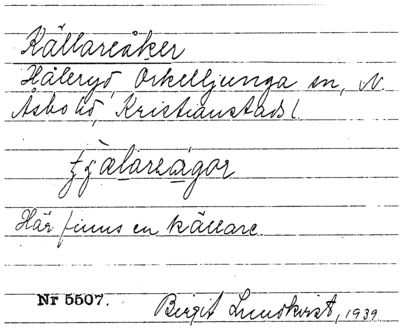 Källareåker
Håleryd, Örkelljunga sn, N.
Åsbo hd, Kristianstads l
tjälareågor
Här finns en källare.
Nr 5507. Birgit Lundkvist, 1939